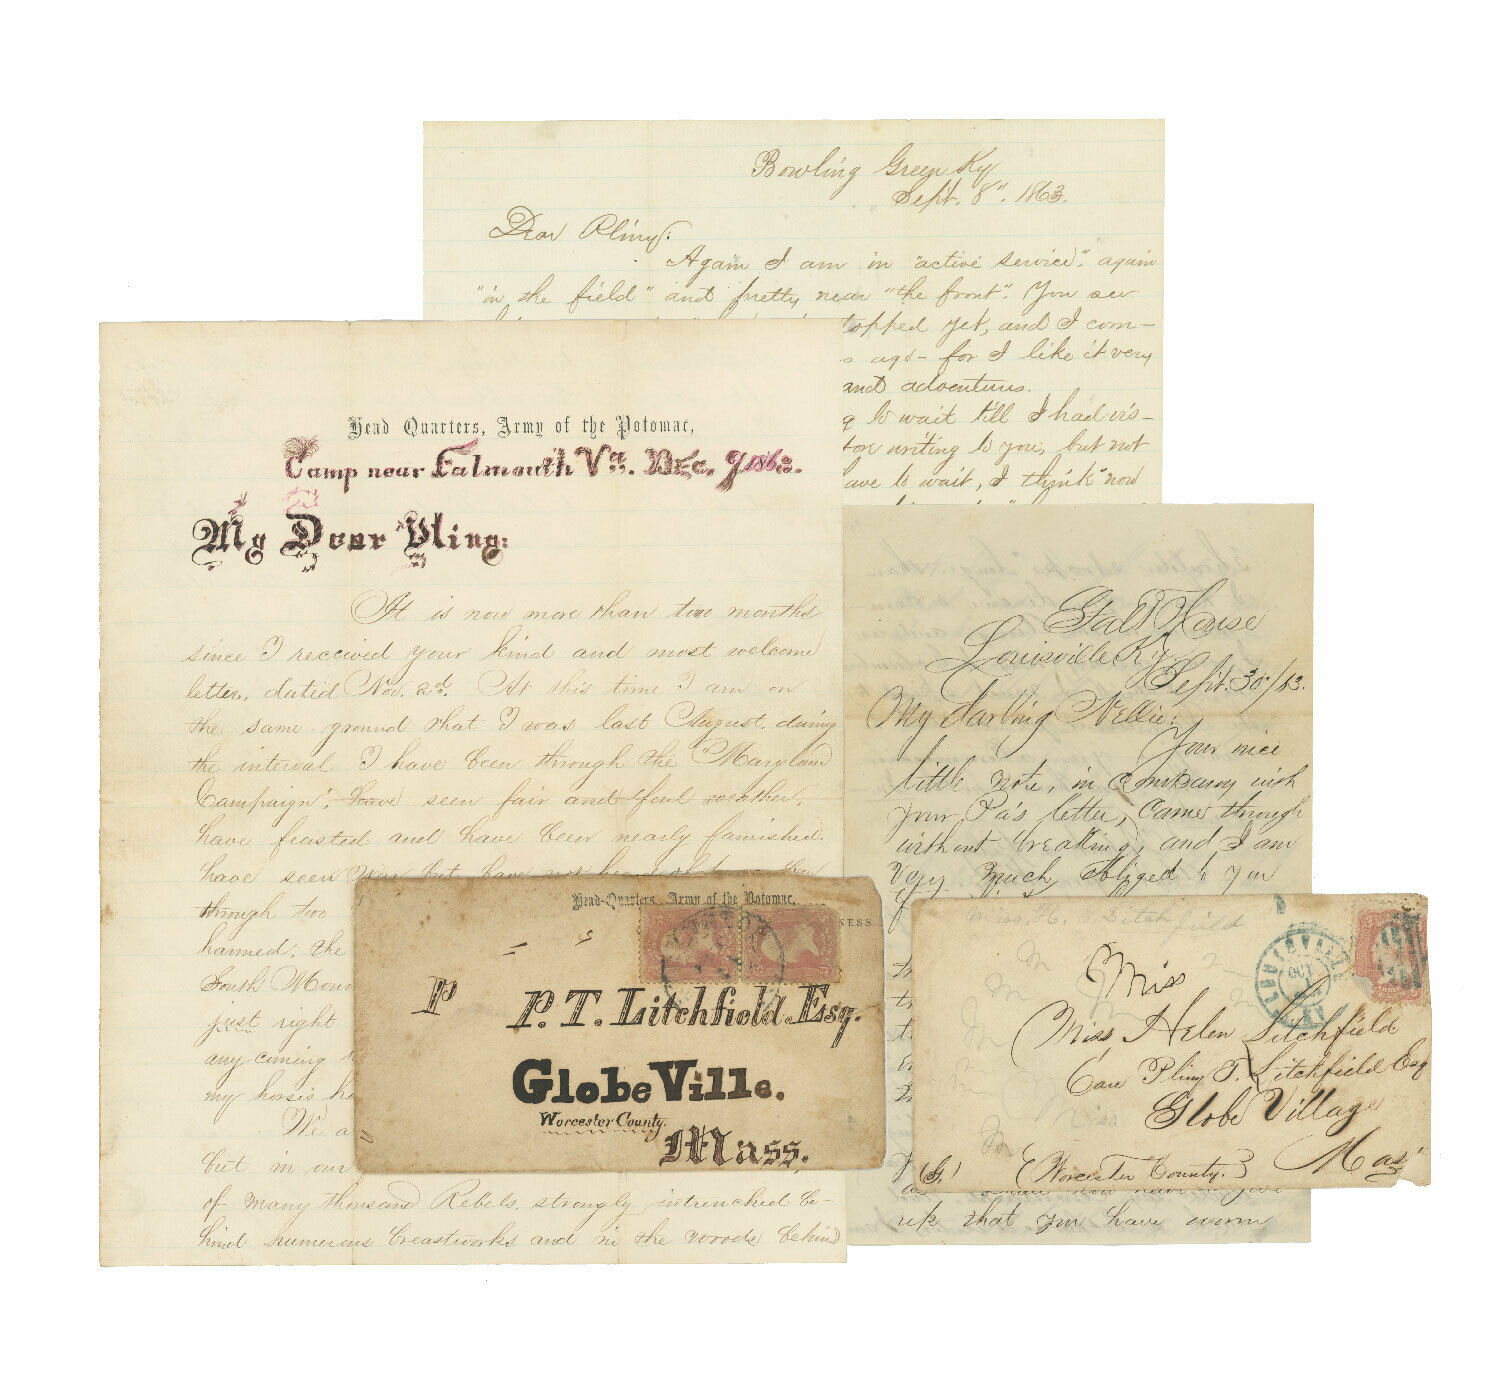 Bowling Green Ky
Sept. 8". 1863.
Dear Pliny:
Again I am in "active service", again
"in the field" and pretty near "the front". You see
topped yet, and I com-
ago - for I like it very
and adventures.
to wait till I had
writing to you, but not
have to wait, I think "now
Head Quarters, Army of the Potomac,
Camp near Falmouth Va. Dec. 9 1862.
My Dear Pliny:
It is now more than two months
since I received your kind and most welcome
letter, dated Nov. 2d. At this time I am on
the same ground that I was last August, during
the interval I have been through the "Maryland
Campaign", have seen fair and foul weather,
have feasted and have been nearly famished.
have seen War but have not
through two
harmed, the
South Moun
just right
any coming
my horse's
We a
but in our
of many thousand Rebels, strongly intrenched be-
hind numerous breastworks and in the woods behind
Galt House
Louisville Ky
Sept. 30/63.
My darling Nellie:
Your nice
little note, in company with
your Pa's letter, came through
without breaking, and I am
very much obliged to you
that you have
Head-Quarters, Army of the Potomac,
NESS
P P. T. Litchfield. Esq.
GlobeVille.
Worcester County.
Mass.
Miss H. Litchfield
Miss
Miss Helen Litchfield
Care Pliny T. Litchfield Esq
Globe Village
(Worcester County.) Mass
LOUISVILLE
OCT
KY